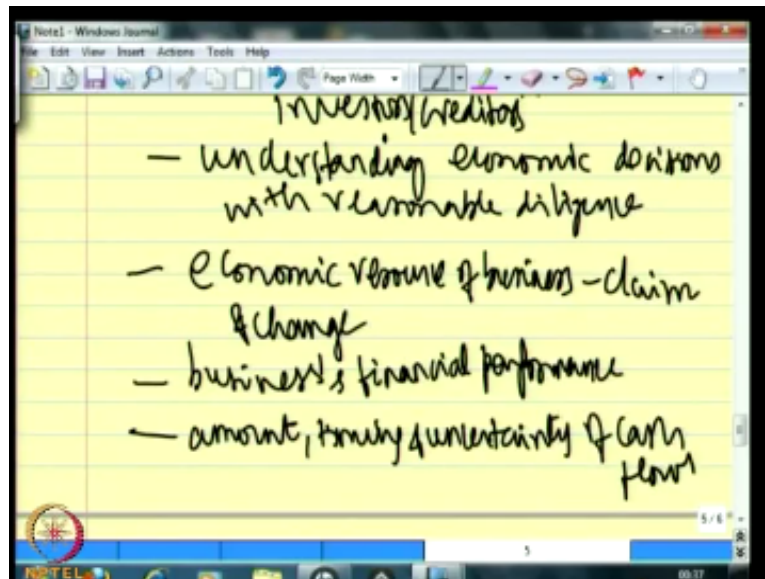 Note1 - Windows Journal
File Edit View Insert Actions Tools Help
Page Width
Investors/Creditors
— understanding economic decisions
with reasonable diligence
— economic resource of business – claim
& change
— business's financial performance
— amount, timing & uncertainty of cash
flows
5/6
5
NPTEL
00:37